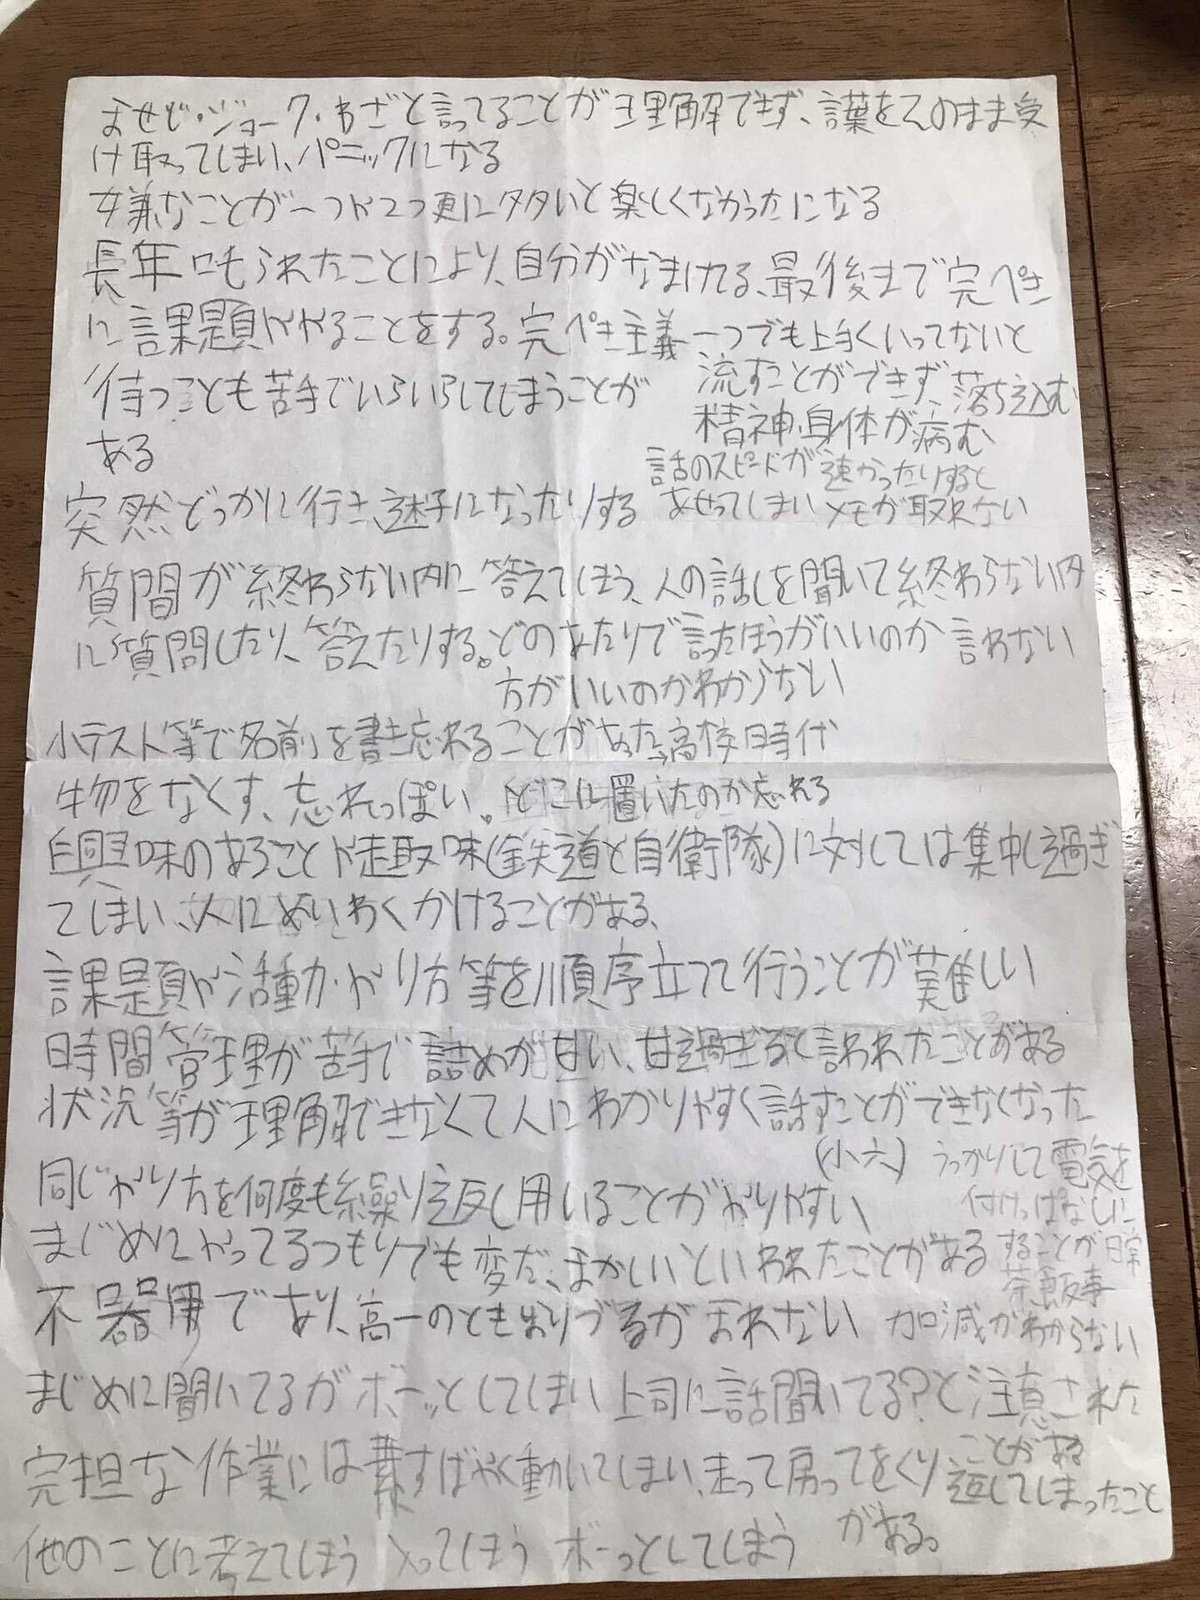 ませじ・ジョーク・わざと言ってることが理解できず、言葉をそのまま受
け取ってしまい、パニックになる
嫌なことが一つや2つ更にタタいと楽しくなかったになる
長年 られたことにより、自分がなまける、最後まで完ぺき
に課題ややることをする。完ぺき主義 一つでも上手くいってないと
流すことができず、落ち込む
精神・身体が病む
待つことも苦手でいらいらしてしまうことが
ある
話のスピードが速かったりすると
あせってしまいメモが取れない
突然どっかに行き、迷子になったりする
質問が終わらない内に答えてしまう、人の話しを聞いて終わらない内
に質問したり、答えたりする。どのあたりで言ったほうがいいのか言わない
方がいいのかわからない
小テスト等で名前を書き忘れることがあった→高校時代
物をなくす、忘れっぽい。どこに置いたのか忘れる
興味のあることや趣味(鉄道と自衛隊)に対しては集中し過ぎ
てしまい、人にめいわくかけることがある、
課題や活動・やり方等を順序立てて行うことが難しい
時間管理が苦手で詰めが甘い、甘過ぎると言われたことがある
状況等が理解できなくて人にわかりやすく話すことができなくなった
(小六)
同じやり方を何度も繰り返し用いることがやりやすい
うっかりして電気を
付けっぱなしに
することが日常
茶飯事
まじめにやってるつもりでも変だ、おかしいといわれたことがある
不器用であり、高一のときおりづるがおれない 加減がわからない
まじめに聞いてるがボーッとしてしまい上司に話聞いてる?と注意された
ことがある
完担な作業には素すばやく動いてしまい、走って戻ってをくり返してしまったこと
がある。
他のことに考えてしまう 入ってしまう ボーっとしてしまう